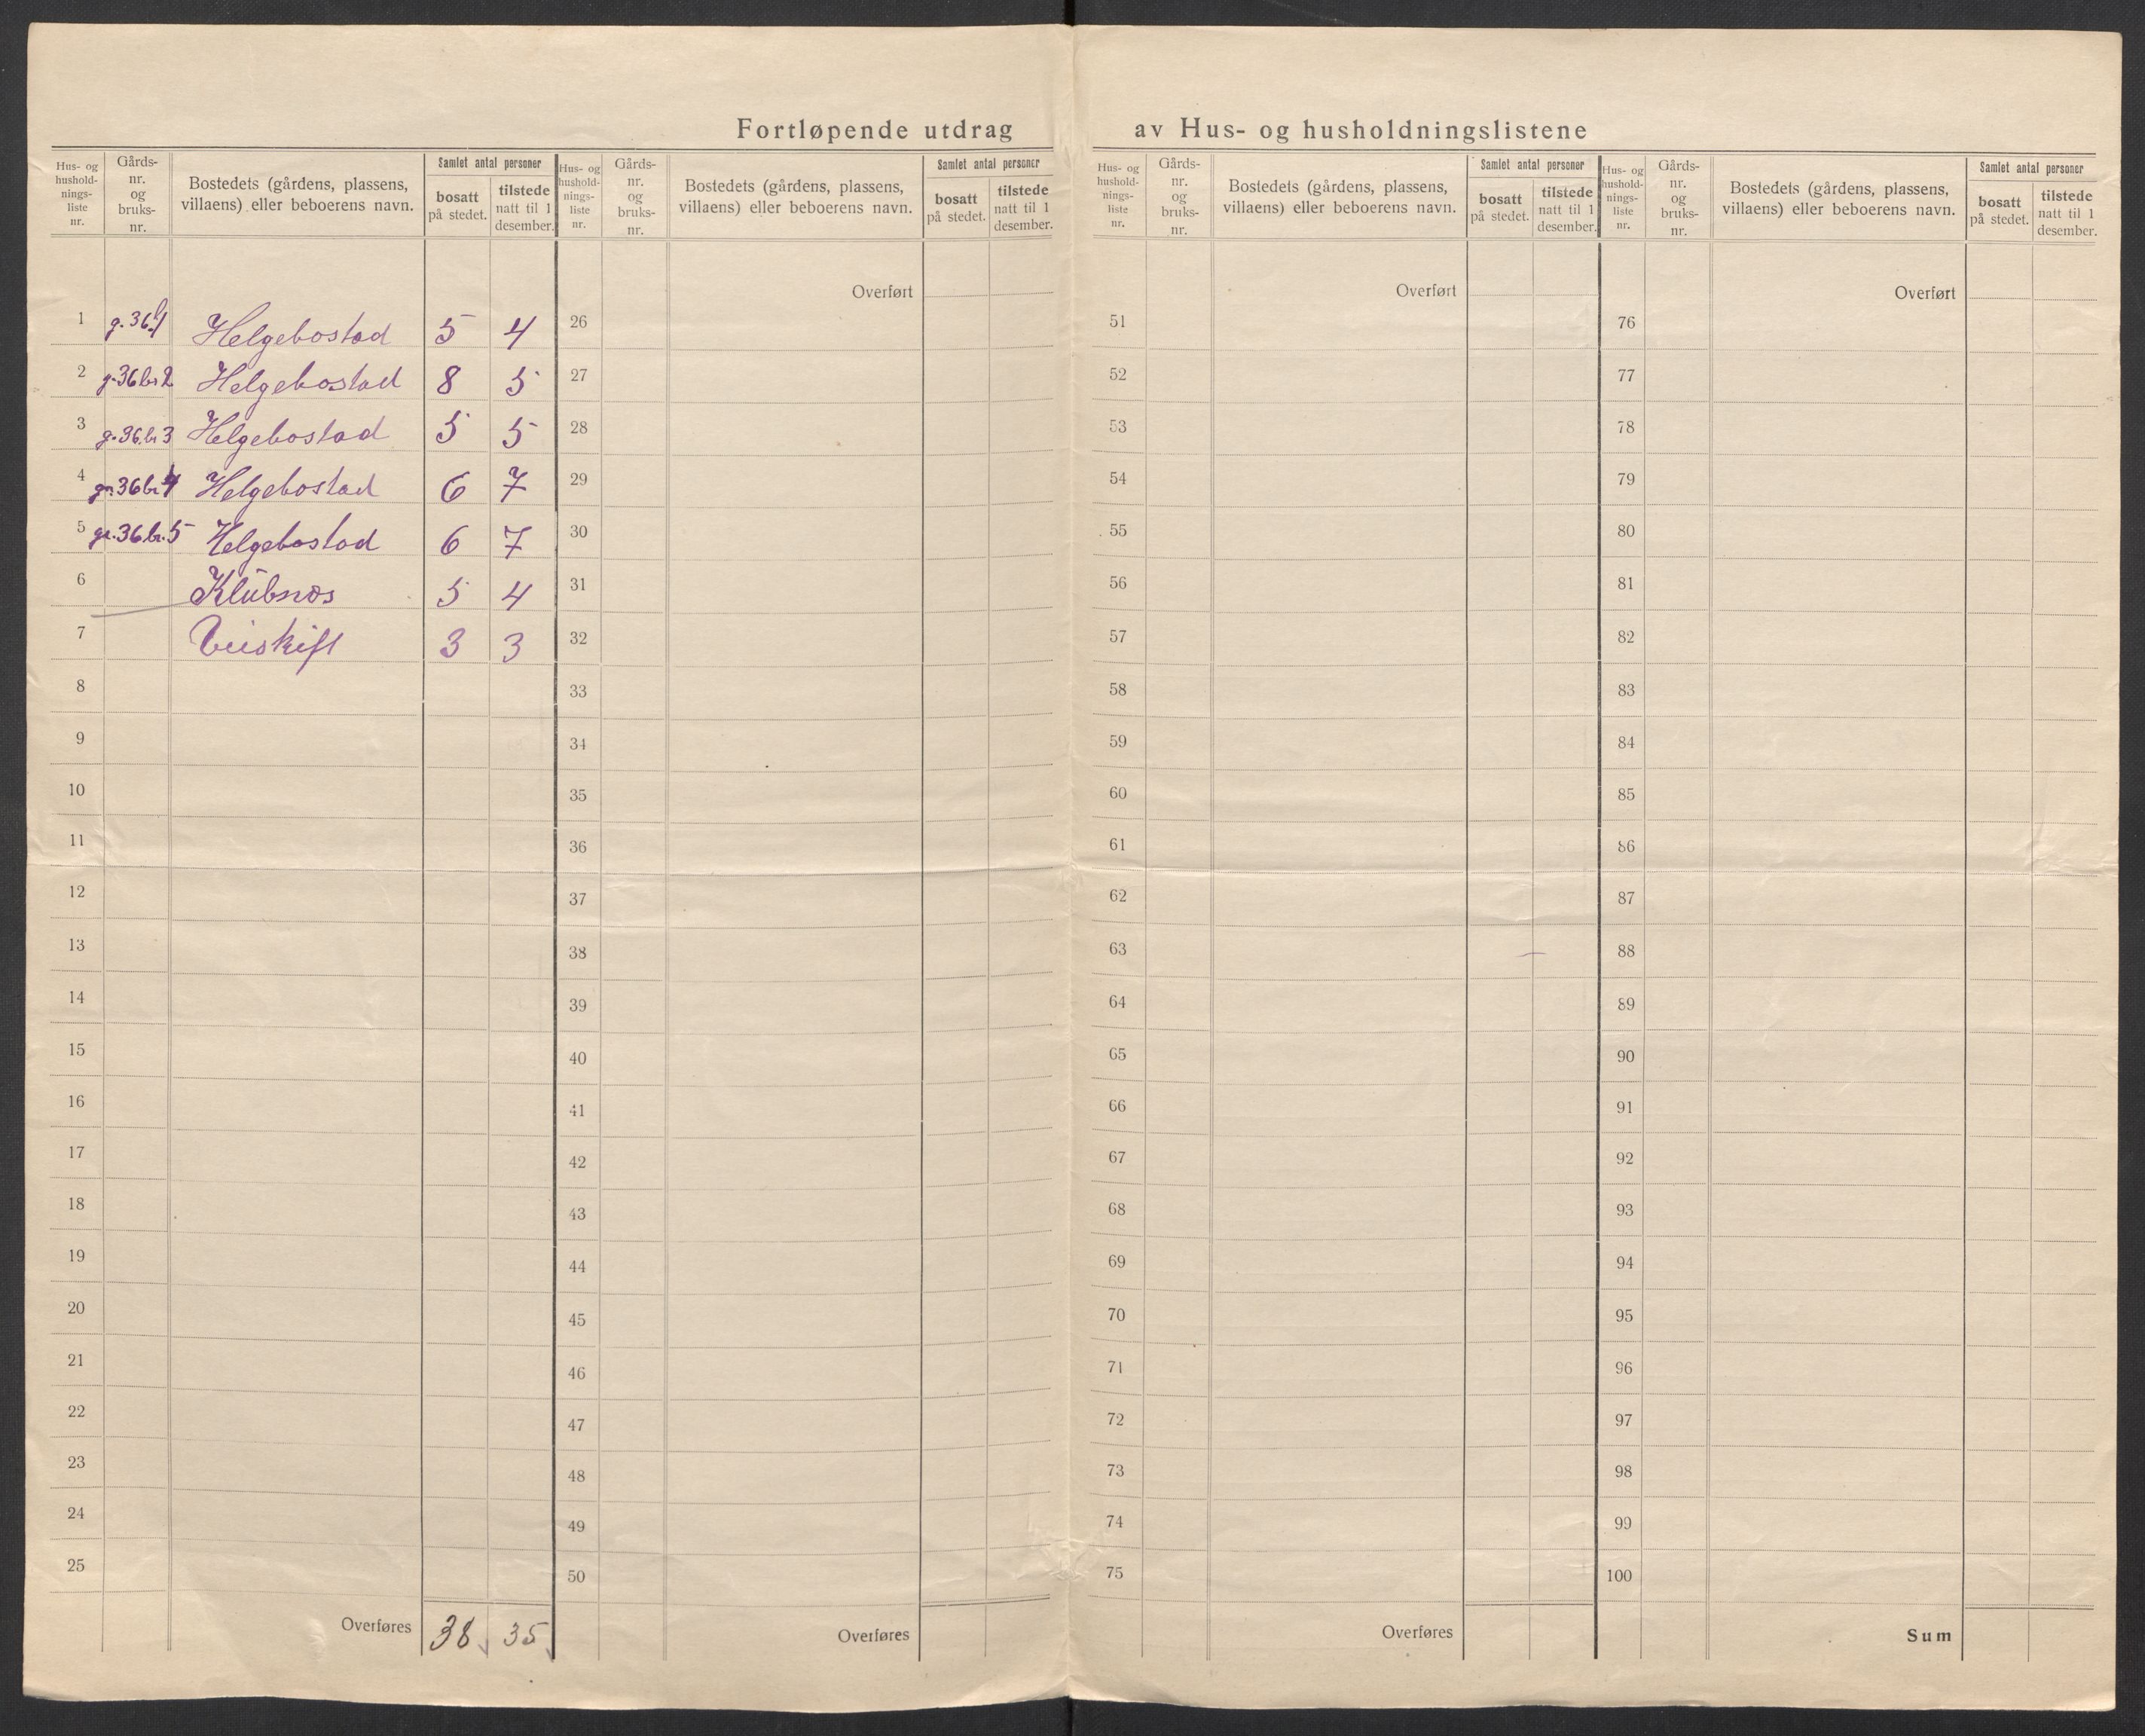 Fortløpende utdrag av Hus- og husholdningslistene
Hus- og
hushold-
nings-
liste
nr.
Gårds-
nr.
og
bruks-
nr.
Bostedets (gårdens, plassens,
villaens) eller beboerens navn.
Samlet antal personer
bosatt
på stedet.
tilstede
natt til 1
desember.
1 g. 36 1 Helgebostad 5 4
2 g. 36 br 2 Helgebostad 8 5
3 g. 36 br 3 Helgebostad 5 5
4 gr. 36 br 4 Helgebostad 6 7
5 gr. 36 br. 5 Helgebostad 6 7
6 Klubnæs 5 4
7 3 3
8
9
10
11
12
13
14
15
16
17
18
19
20
21
22
23
24
25
Overføres 38 35
Hus- og
hushold-
nings-
liste
nr.
Gårds-
nr.
og
bruks-
nr.
Bostedets (gårdens, plassens,
villaens) eller beboerens navn.
Samlet antal personer
bosatt
på stedet.
tilstede
natt til 1
desember.
Overført
26
27
28
29
30
31
32
33
34
35
36
37
38
39
40
41
42
43
44
45
46
47
48
49
50
Overføres
Hus- og
hushold-
nings-
liste
nr.
Gårds-
nr.
og
bruks-
nr.
Bostedets (gårdens, plassens,
villaens) eller beboerens navn.
Samlet antal personer
bosatt
på stedet.
tilstede
natt til 1
desember.
Overført
51
52
53
54
55
56
57
58
59
60
61
62
63
64
65
66
67
68
69
70
71
72
73
74
75
Overføres
Hus- og
hushold-
nings-
liste
nr.
Gårds-
nr.
og
bruks-
nr.
Bostedets (gårdens, plassens,
villaens) eller beboerens navn.
Samlet antal personer
bosatt
på stedet.
tilstede
natt til 1
desember.
Overført
76
77
78
79
80
81
82
83
84
85
86
87
88
89
90
91
92
93
94
95
96
97
98
99
100
Sum